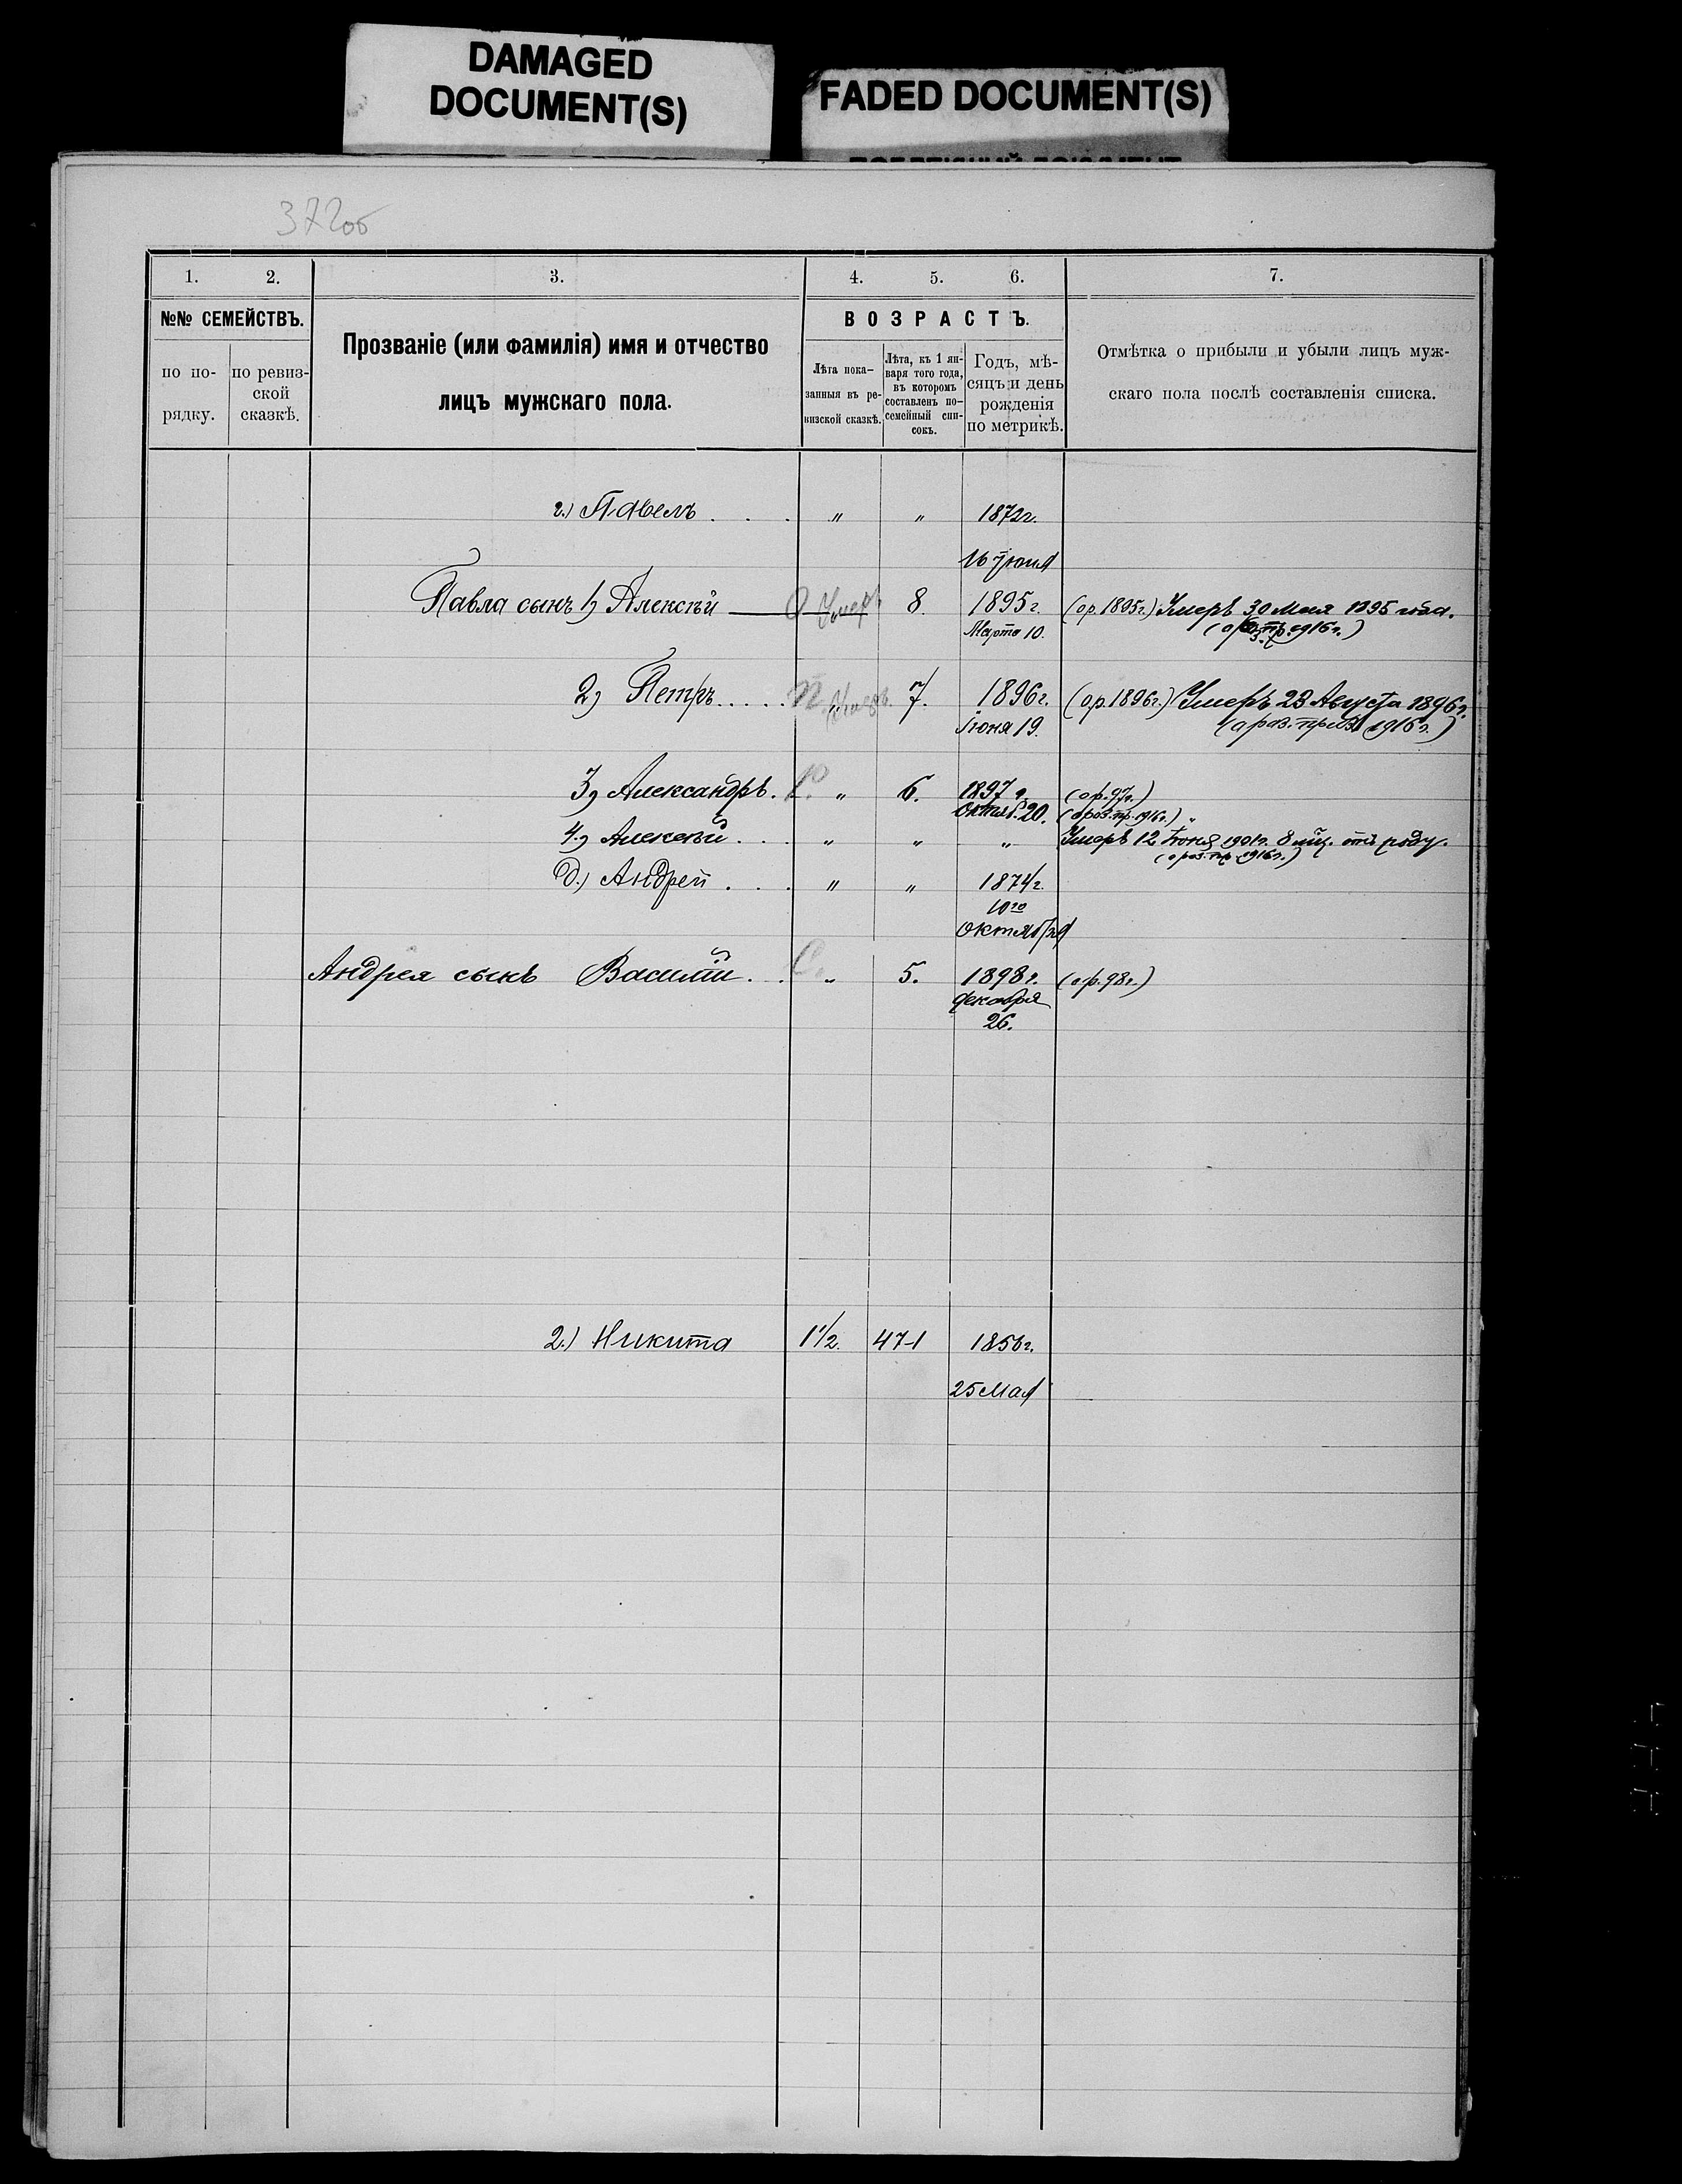 DAMAGED
DOCUMENT(S)
FADED DOCUMENT(S)
372об
1. 2. 3. 4. 5. 6. 7.
№№ СЕМЕЙСТВЪ.
по по-
рядку.
по ревиз-
ской
сказкѣ.
Прозваніе (или фамилія) имя и отчество
лицъ мужскаго пола.
ВОЗРАСТЪ.
Лѣта пока-
занныя въ ре-
визской сказкѣ.
Лѣта, къ 1 ян-
варя того года,
въ которомъ
составленъ по-
семейный спи-
сокъ.
Годъ, мѣ-
сяцъ и день
рожденія
по метрикѣ.
Отмѣтка о прибыли и убыли лицъ муж-
скаго пола послѣ составленія списка.
г.) Павелъ . . . " " 1872г.
16 Іюня
Павла сынъ 1, Алексѣй Умеръ 8 1895г. (о.р. 1895г.) Умеръ 30 Мая 1895 года.
Марта 10. 1916г.)
2, Петръ..... 7. 1896г. (о.р. 1896г.) Умеръ 23 Августа 1896г.
Іюня 19. (о роз. приз. 1916г.)
3, Александръ. " 6. 1897г. (о.р. 97г.)
Октяб. 20. (о роз. пр. 1916г.) "
4, Алексѣй . . . " " " Умеръ 12 Іюня 1901г. 8 мѣц. отъ роду.
(о роз. пр. 1916г.)
д.) Андрей . . . " " 1874г.
10го
октября
Андрея сынъ Василій . . " 5. 1898г. (о.р. 98г.)
декабря
26.
2.) Никита 1½. 47-1 1856г.
25 Мая